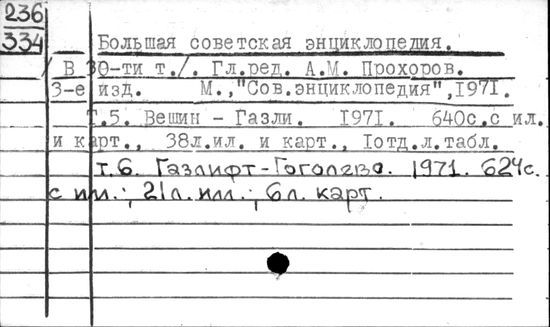 236
334
Большая советская энциклопедия.
/ В 30-ти т./. Гл.ред. А.М. Прохоров.
3-е изд. М.,"Сов.энциклопедия",1971.
Т.5. Вешин - Газли. 1971. 640с.с ил.
и карт., 38л.ил. и карт., 1отд.л.табл.
т.6. Газлифт-Гоголево. 1971. 624с.
с илл.; 21л.илл.; 6л.карт.